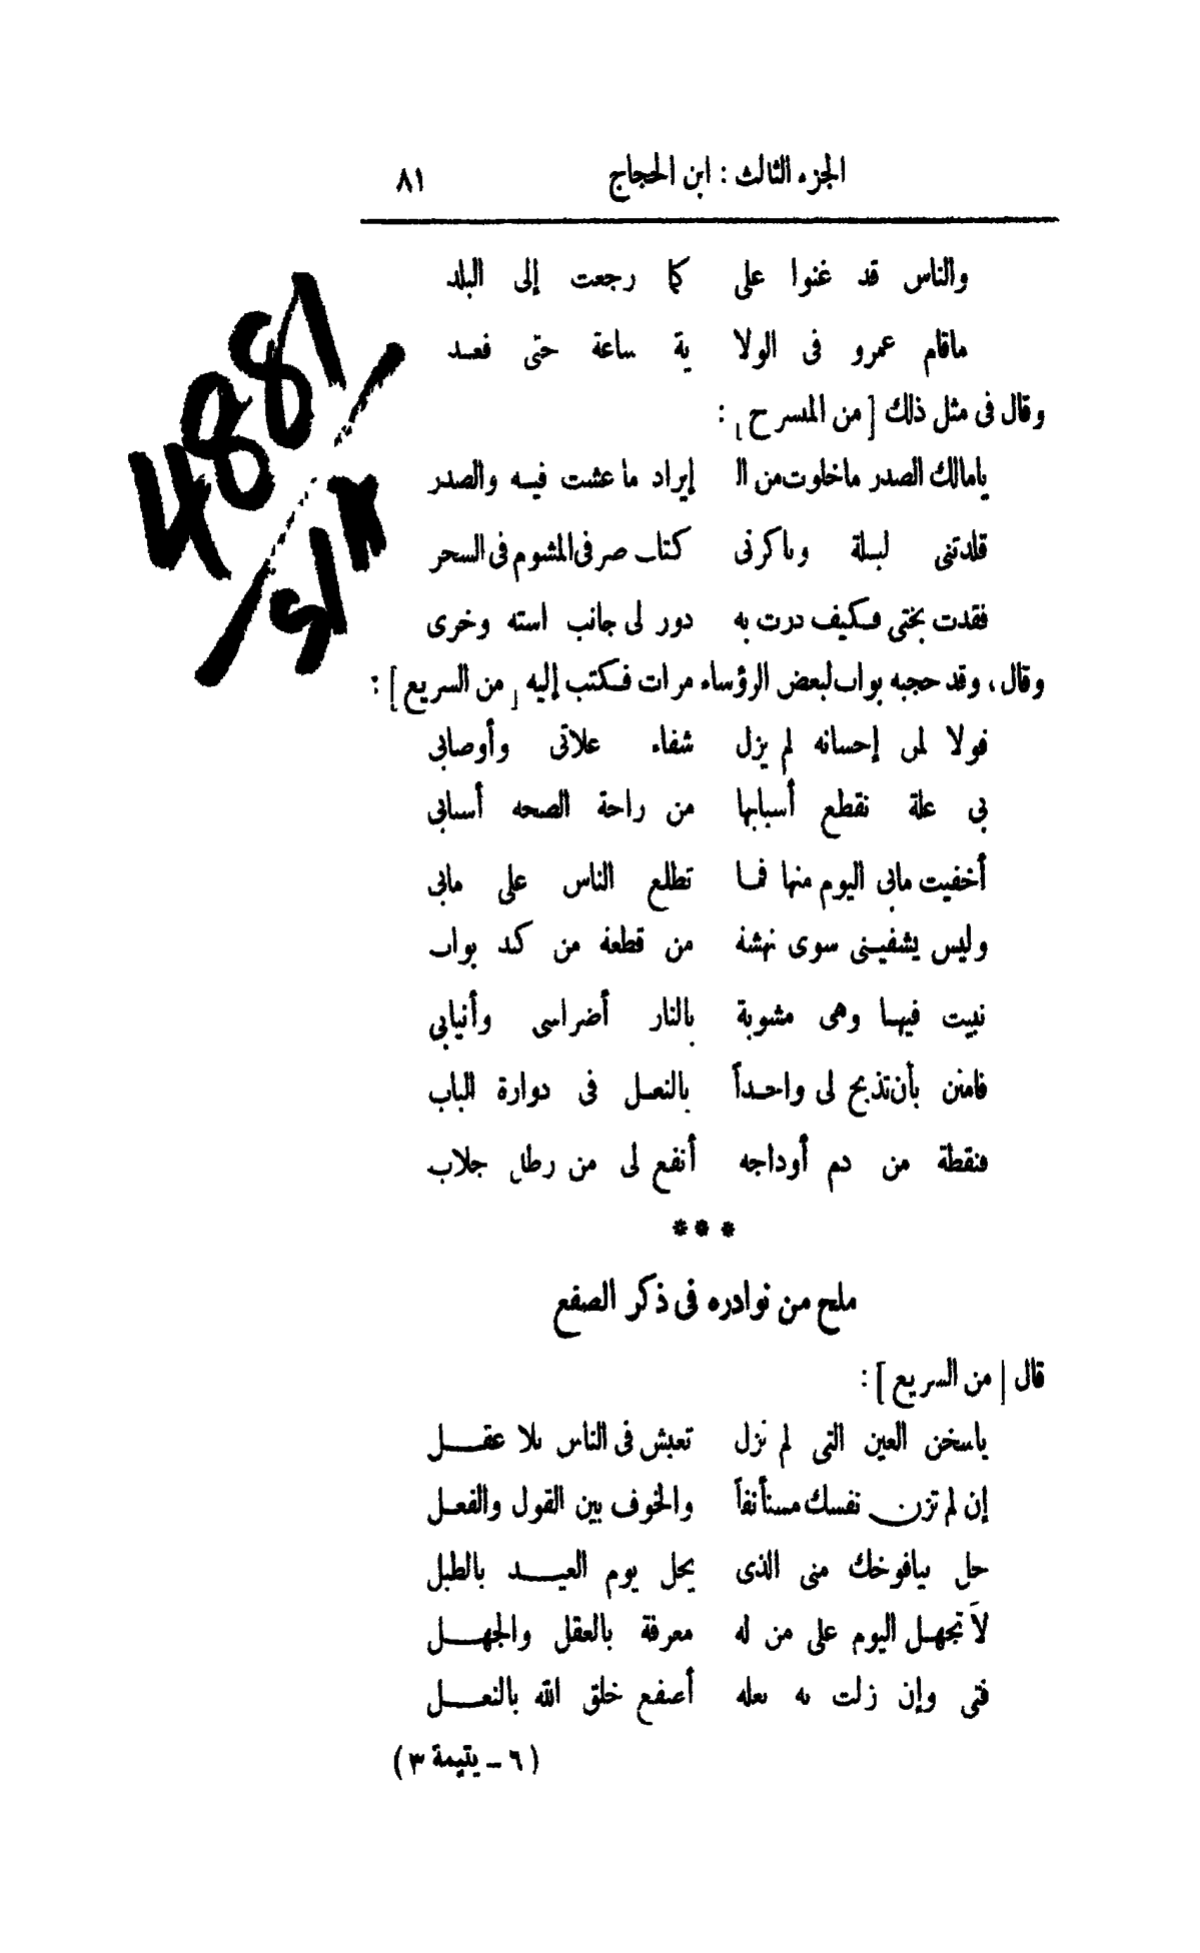 الجزء الثالث : ابن الحجاج ٨١
والناس قد غنوا على كما رجعت إلى البلد
ماقام عمرو فى الولا ية ساعة حتى قعد
وقال فى مثل ذلك [ من المنسرح ] :
يامالك الصدر ماخلوت من الـ إيراد ما عشت فيه والصدر
قلدتنى ليلة وباكرنى كتاب صرفى المشوم فى السحر
فقدت بختى فكيف درت به دور لى جانب استه وخرى
وقال ، وقد حجبه بواب لبعض الرؤساء مرات فكتب إليه [ من السريع ] :
قولا لمن إحسانه لم يزل شفاء علاتى وأوصابى
بى علة تقطع أسبابها من راحة الصحه أسبابى
أخفيت مابى اليوم منها فما تطلع الناس على مابى
وليس يشفينى سوى نهشة من قطعة من كبد بواب
تبيت فيها وهى مشوية بالنار أضراسى وأنيابى
فامنن بأن تذبح لى واحداً بالنعل فى دوارة الباب
فنقطة من دم أوداجه أنفع لى من رطل جلاب
***
ملح من نوادره فى ذكر الصفع
قال [ من السريع ] :
ياسخن العين التى لم تزل تعبش فى الناس بلا عقل
إن لم تزن نفسك مستأنفاً والخوف بين القول والفعل
حل بيافوخك منى الذى يحل يوم العيد بالطبل
لاَ تجهل اليوم على من له معرفة بالعقل والجهل
فتى وإن زلت به نعله أصفع خلق الله بالنعل
( ٦ – يتيمة ٣ )
4881